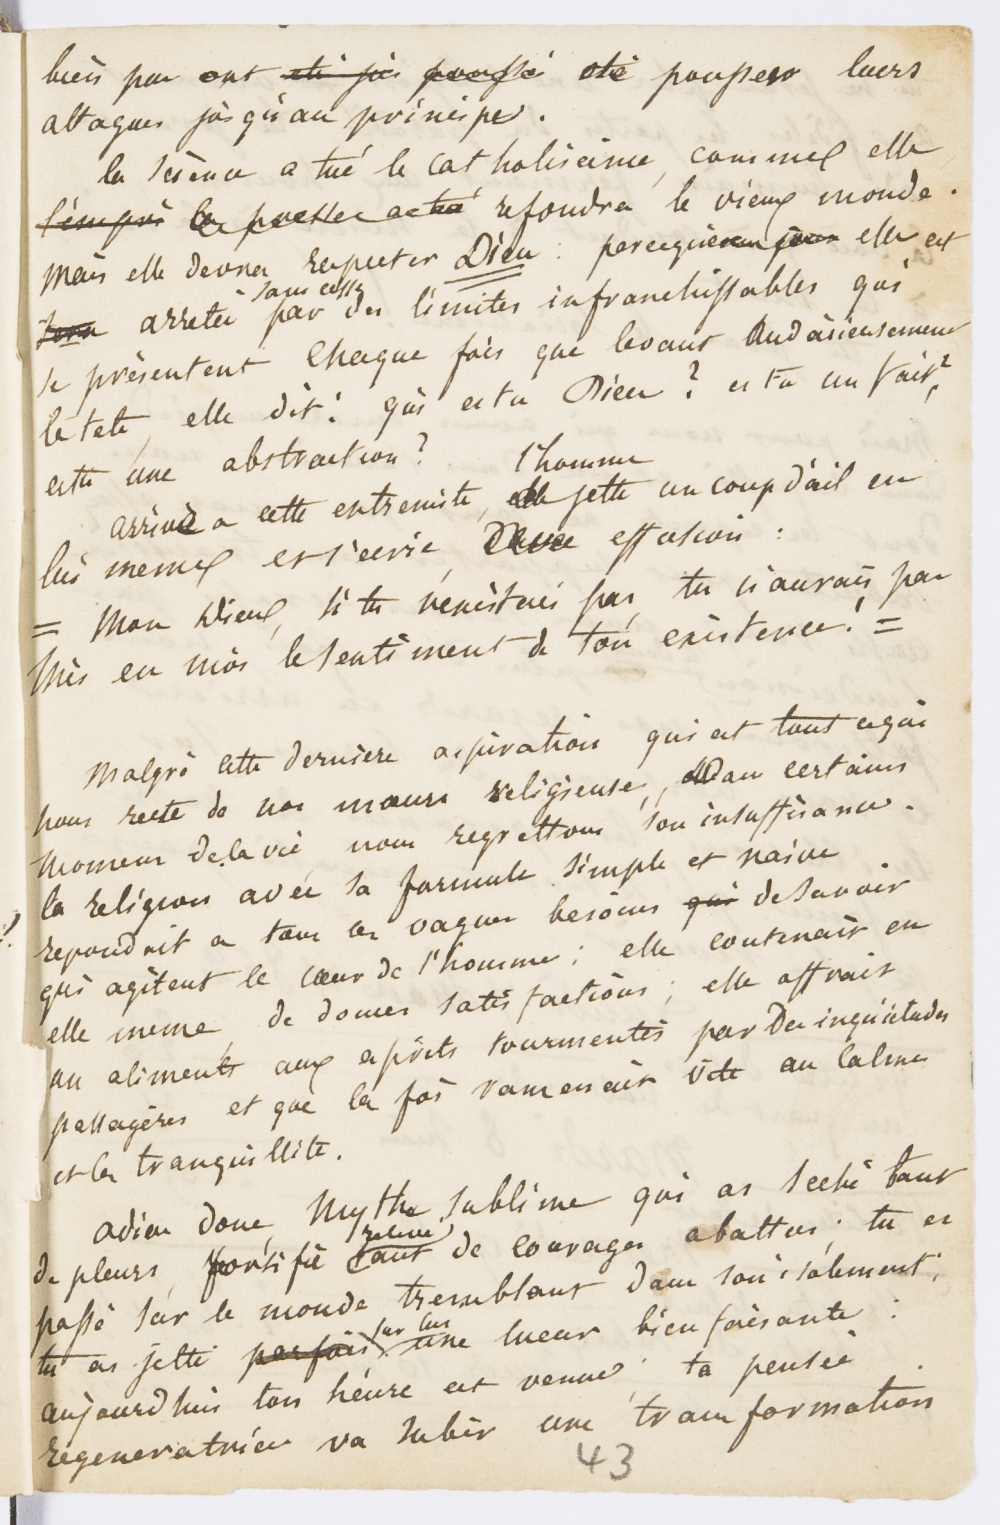 biens par ont été jus poussé oté pousser leurs
attaques jusqu'au principe.
la science a tué le catholicisme, comme elle
refondra le vieux monde.
mais elle devra respecter Dieu : parcequ elle est
arretée sans cesse par des limites infranchissables qui
se présentent chaque fois que levant audacieusement
la tete, elle dit : qui es tu Dieu ? es tu un fait ?
es tu une abstraction ?
arrivé a cette extremité, l'homme jette un coup d'œil en
lui meme et s'ecrie, avec effusion :
= Mon Dieu, si tu n'existais pas, tu n'aurais pas
mis en moi le sentiment de ton existence ! =
Malgré cette derniere aspiration qui est tout ce qui
nous reste de nos mœurs religieuse, dans certains
momens de la vie nous regrettons son insuffisance.
la religion avec sa formule simple et naive
repondait a tous ces vagues besoins qui de savoir
qui agitent le cœur de l'homme ; elle contenait en
elle meme, de douces satisfactions ; elle offrait
un aliments aux esprits tourmentés par des inquiétudes
passagères et que la foi ramenait vite au calme
et la tranquillité.
adieu donc, Mythe sublime qui as seché tant
de pleurs, fortifié relevé tant de courages abattus ; tu es
passé sur le monde tremblant dans son isolement ;
tu as jetté parfois sur lui une lueur bienfaisante :
aujourd'hui ton heure est venue ; ta pensée
regeneratrice va subir une transformation
43